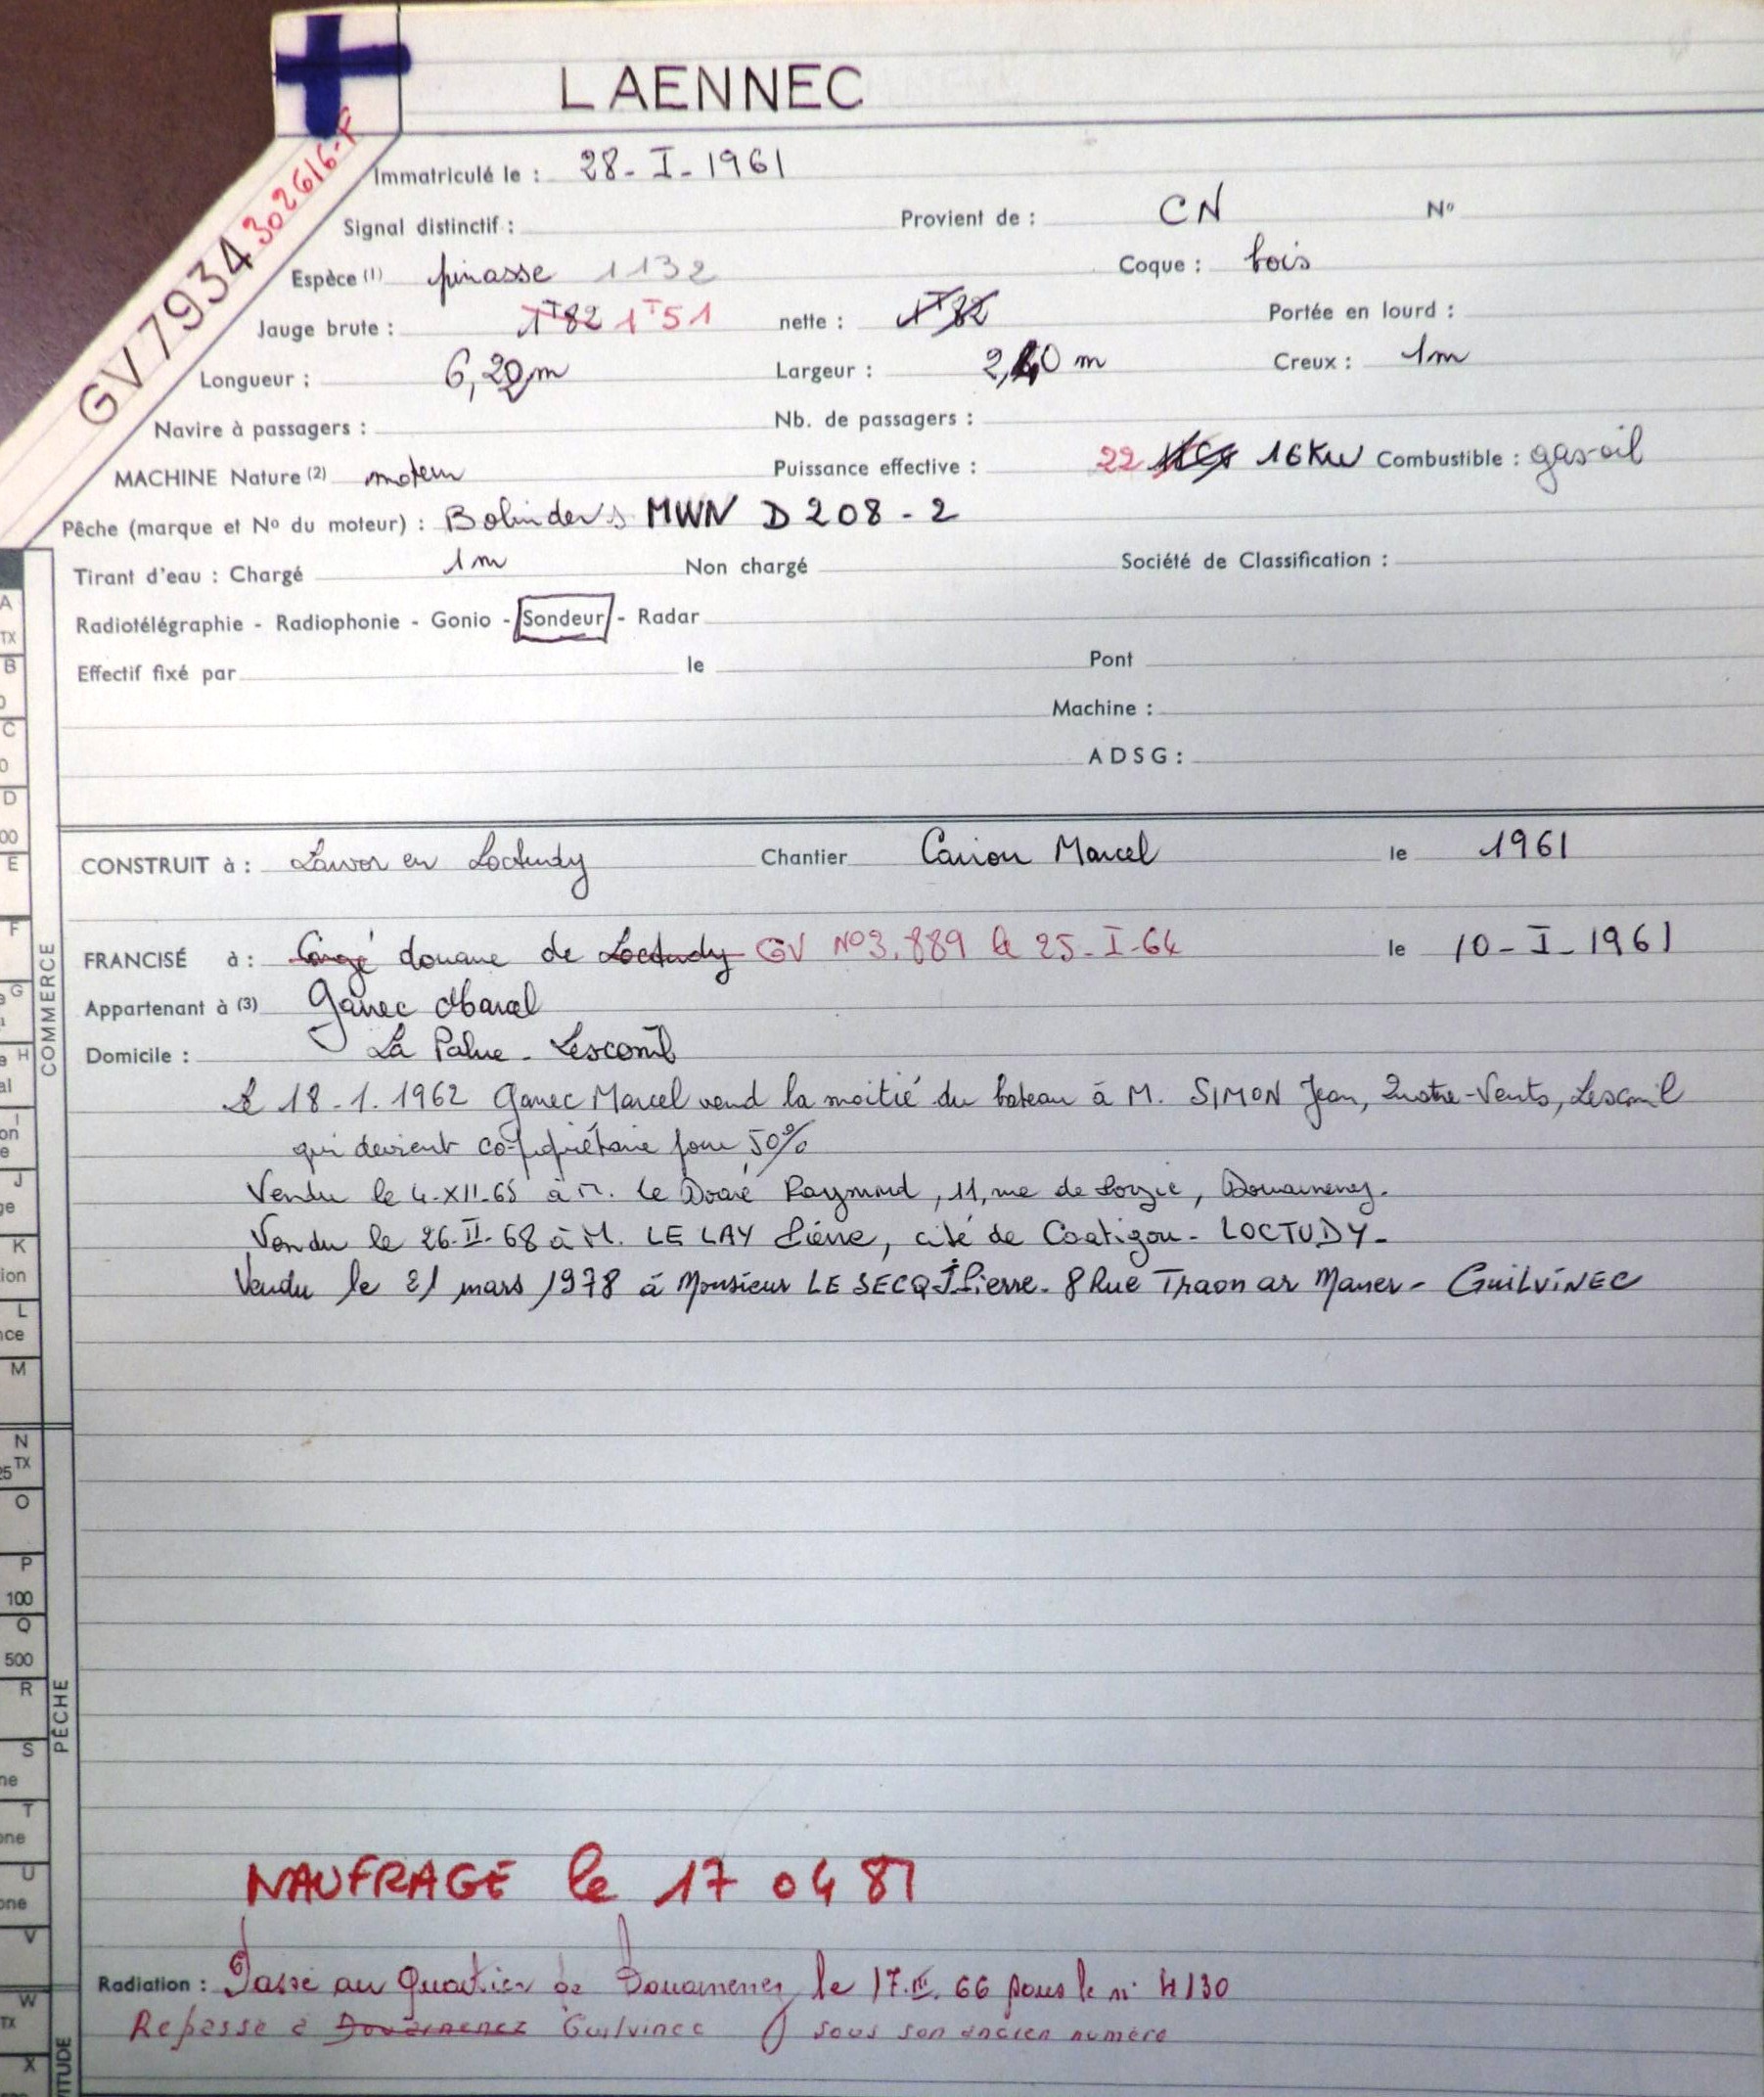 LAENNEC
GV7934 302616-F
Immatriculé le : 28-I-1961
Signal distinctif : Provient de : CN N°
Espèce (1) pinasse 1132 Coque : bois
Jauge brute : 1T82 1T51 nette : 1T82 Portée en lourd :
Longueur : 6,20m Largeur : 2,40 m Creux : 1m
Navire à passagers : Nb. de passagers :
MACHINE Nature (2) moteur Puissance effective : 22 16KW Combustible : gas-oil
Pêche (marque et N° du moteur) : Bolinder's MWN D208-2
Tirant d'eau : Chargé 1m Non chargé Société de Classification :
Radiotélégraphie - Radiophonie - Gonio - Sondeur - Radar
Effectif fixé par le Pont
Machine :
ADSG :
CONSTRUIT à : Larvor en Loctudy Chantier Carion Marcel le 1961
FRANCISÉ à : Congé douane de Loctudy GV N°3.889 le 25-I-64 le 10-I-1961
Appartenant à (3) Garrec Marcel
Domicile : La Palue - Lesconil
Le 18-1.1962 Garrec Marcel vend la moitié du bateau à M. SIMON Jean, Quatre-Vents, Lesconil
qui devient co-propriétaire pour 50%
Vendu le 4-XII-65 à M. Le Doaré Raymond, 11, rue de , Douarnenez.
Vendu le 26-II-68 à M. LE LAY Pierre, cité de Coatigou - LOCTUDY-
Vendu le 21 mars 1978 à Monsieur LE SECQ J Pierre - 8 Rue Traon ar Maner - GUILVINEC
NAUFRAGE le 17 04 81
Radiation : Passé au Quartier de Douarnenez le 17.III.66 sous le n° 4130
Repasse à Douarnenez Guilvinec sous son ancien numéro
COMMERCE
PÊCHE
A
TX
B
C
D
E
F
G
H
I
J
K
L
M
N
TX
O
P
100
Q
500
R
S
T
U
V
W
TX
X